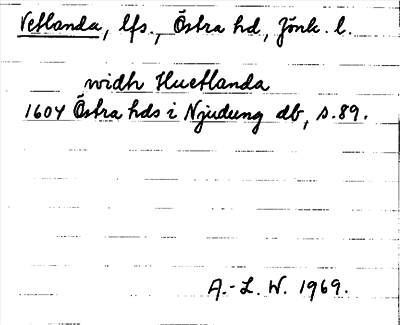 Vetlanda, lfs., Östra hd, Jönk. l.
widh Huetlanda
1604 Östra hds i Njudung db, s.89.
A.-L. W. 1969.